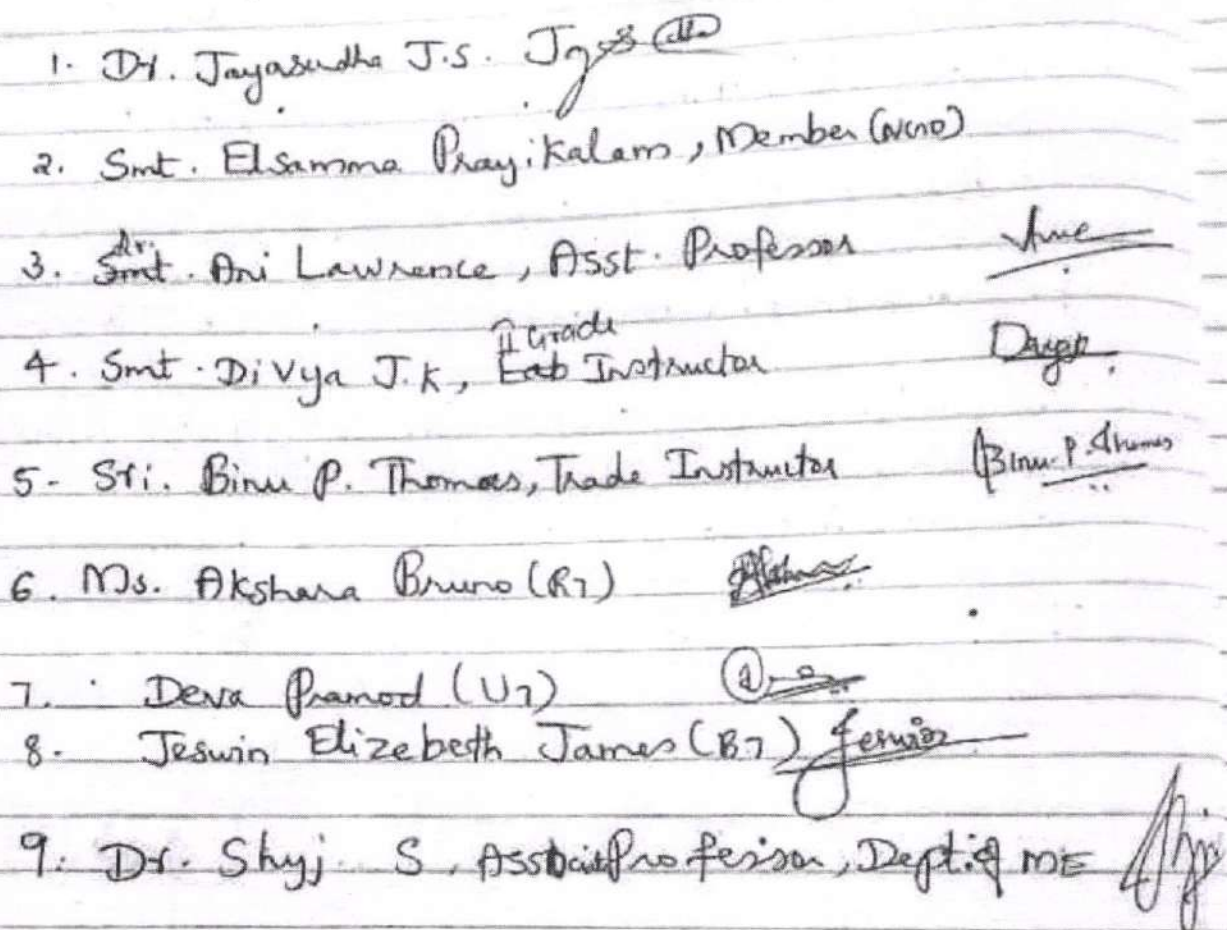 1. Dr. Jayasudha J.S.
2. Smt. Elsamma Prayikalam, Member (NGO)
3. Dr. Smt. Ani Lawrence, Asst. Professor
4. Smt. Divya J.K, II Grade Lab Instructor
5. Sri. Binu P. Thomas, Trade Instructor Binu P. Thomas
6. Ms. Akshara Bruno (R7)
7. Deva Pramod (U7)
8. Jeswin Elizebeth James (B7) Jeswin
9. Dr. Shyj S, Professor, Dept. of ME